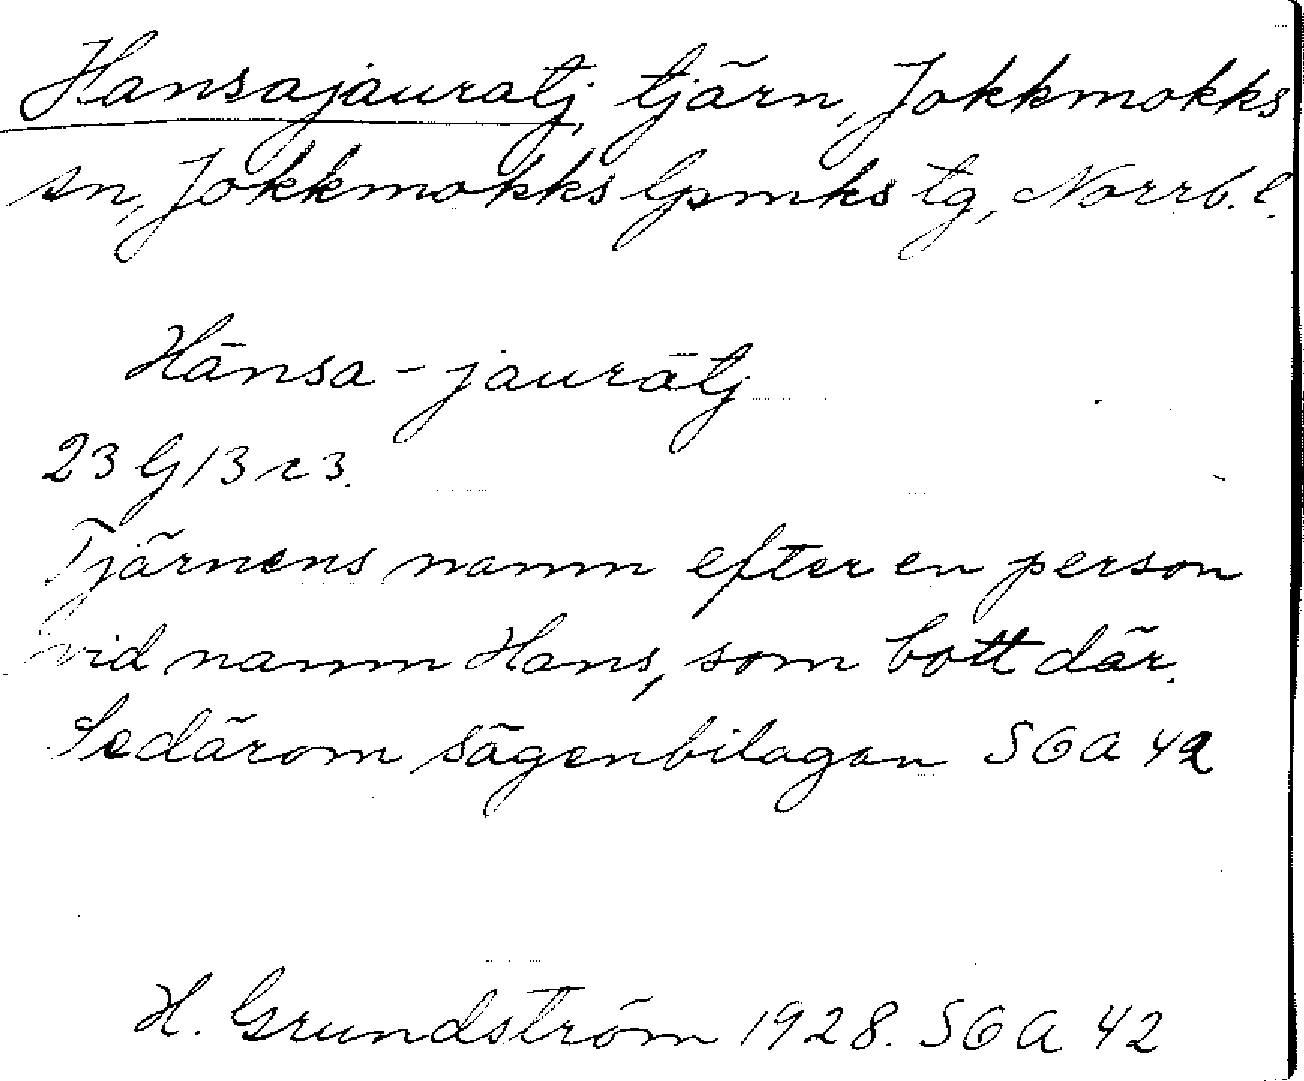 Hansajauratj, tjärn, Jokkmokks
sn, Jokkmokks lpmks tg, Norrb. l.
Hānsa-jaurātj
23 G 13 r 3.
Tjärnens namn efter en person
vid namn Hans, som bott där.
Se därom sägenbilagan SOA 42
H. Grundström 1928. SOA 42